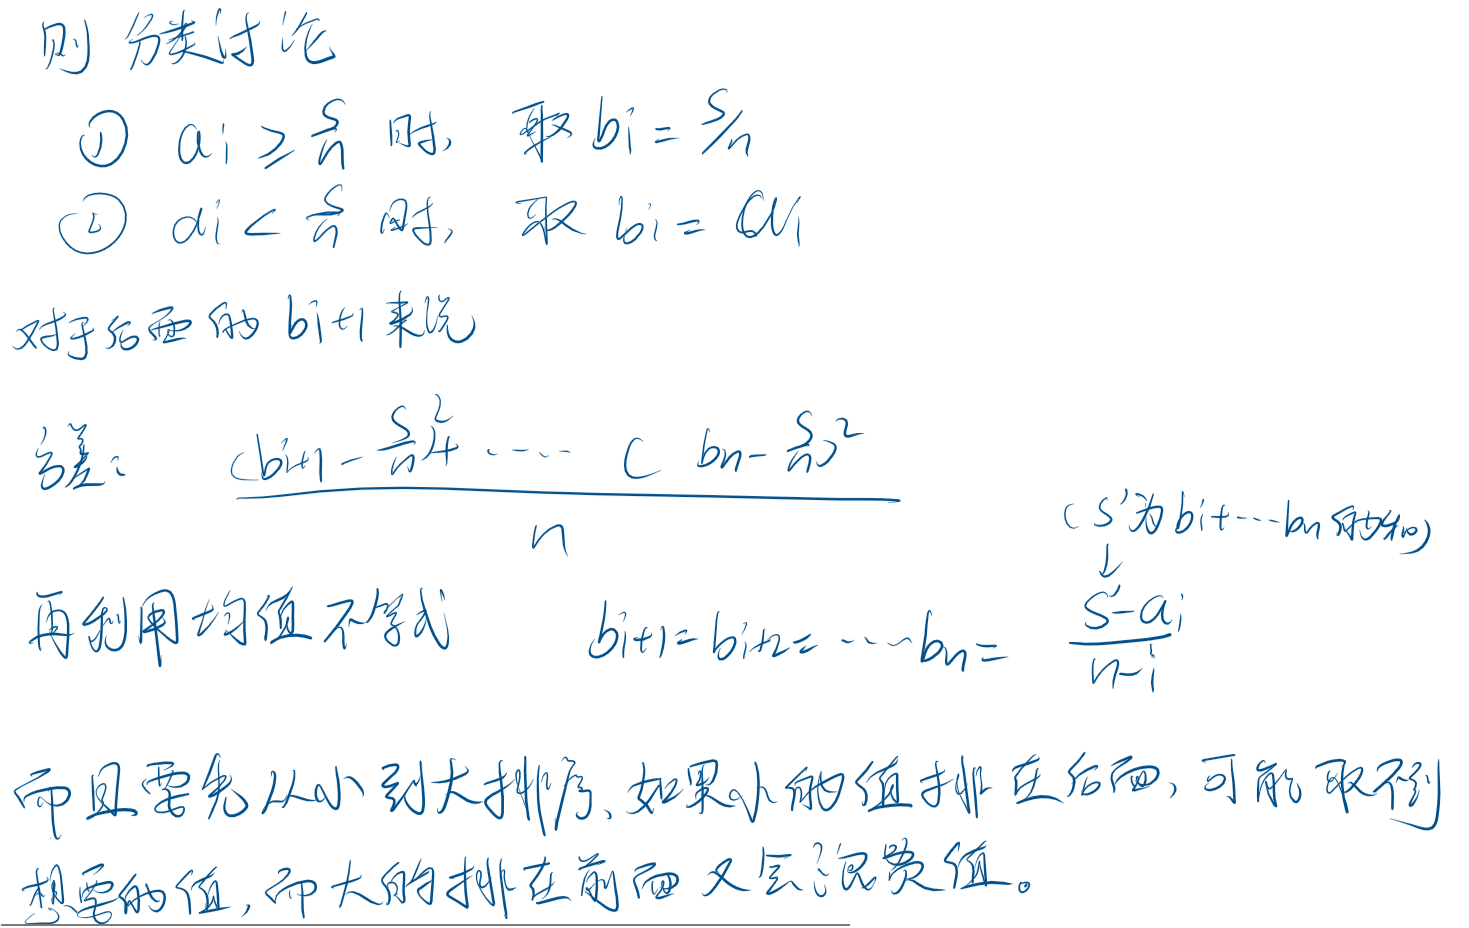 则 分类讨论
① ai ≥ s/n 时, 取 bi = s/n
② ai < s/n 时, 取 bi = ai
对于后面的 bi+1 来说
方差: ((bi+1 - s/n)²+ ····· ( bn - s/n)²) / n
(s'为bi+···bn的和)
↓
再利用均值不等式 bi+1 = bi+2 = ····· bn = (s'-ai)/(n-i)
而且要先从小到大排序、如果小的值排在后面, 可能取不到
想要的值, 而大的排在前面又会浪费值。